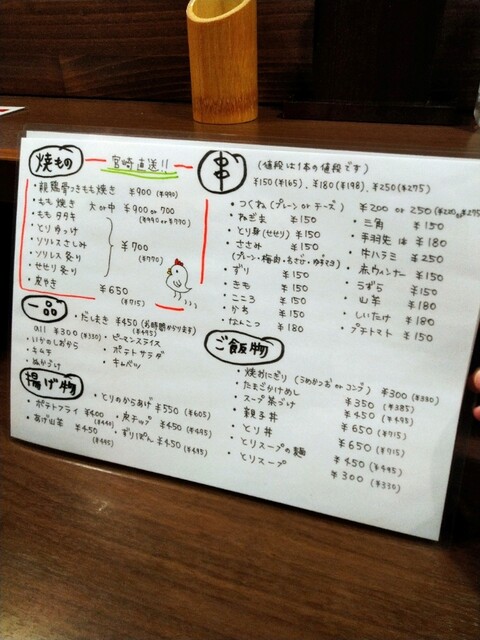 焼もの
宮崎直送!!
・親鶏骨つきもも焼き ¥900 (¥990)
・もも焼き 大or中 ¥900 or 700
(¥990 or ¥770)
・もも タタキ
・とり ユッケ
・ソリレスさしみ ¥700
・ソリレス炙り (¥770)
・せせり炙り
・皮やき ¥650
(¥715)
一品
・だしまき ¥450 (お時間かかります)
(¥495)
all ¥300 (¥330)
・いかのしおから
・キムチ
・ピーマンスライス
・ポテトサラダ
・キャベツ
揚げ物
・ポテトフライ ¥400
(¥440)
・あげ山芋 ¥450
(¥495)
・とりのからあげ ¥550 (¥605)
・皮チップ ¥450 (¥495)
・ずりぽん ¥450 (¥495)
串
(値段は1本の値段です)
¥150 (¥165)、¥180 (¥198)、¥250 (¥275)
・つくね (プレーン or チーズ) ¥200 or 250 (¥220 or ¥275)
・ねぎま ¥150
・とり身 (せせり) ¥150
・ささみ ¥150
(プレーン・梅肉・わさび・ゆずマヨ)
・ずり ¥150
・きも ¥150
・こころ ¥150
・かわ ¥150
・なんこつ ¥180
・三角 ¥150
・手羽先 は ¥180
・牛ハラミ ¥250
・赤ウィンナー ¥150
・うずら ¥150
・山芋 ¥180
・しいたけ ¥180
・プチトマト ¥150
ご飯物
・焼おにぎり (うめかつお or コンブ) ¥300 (¥330)
・たまごかけめし ¥350 (¥385)
・スープ茶づけ ¥450 (¥495)
・親子丼 ¥650 (¥715)
・とり丼 ¥650 (¥715)
・とりスープの麺 ¥450 (¥495)
・とりスープ ¥300 (¥330)